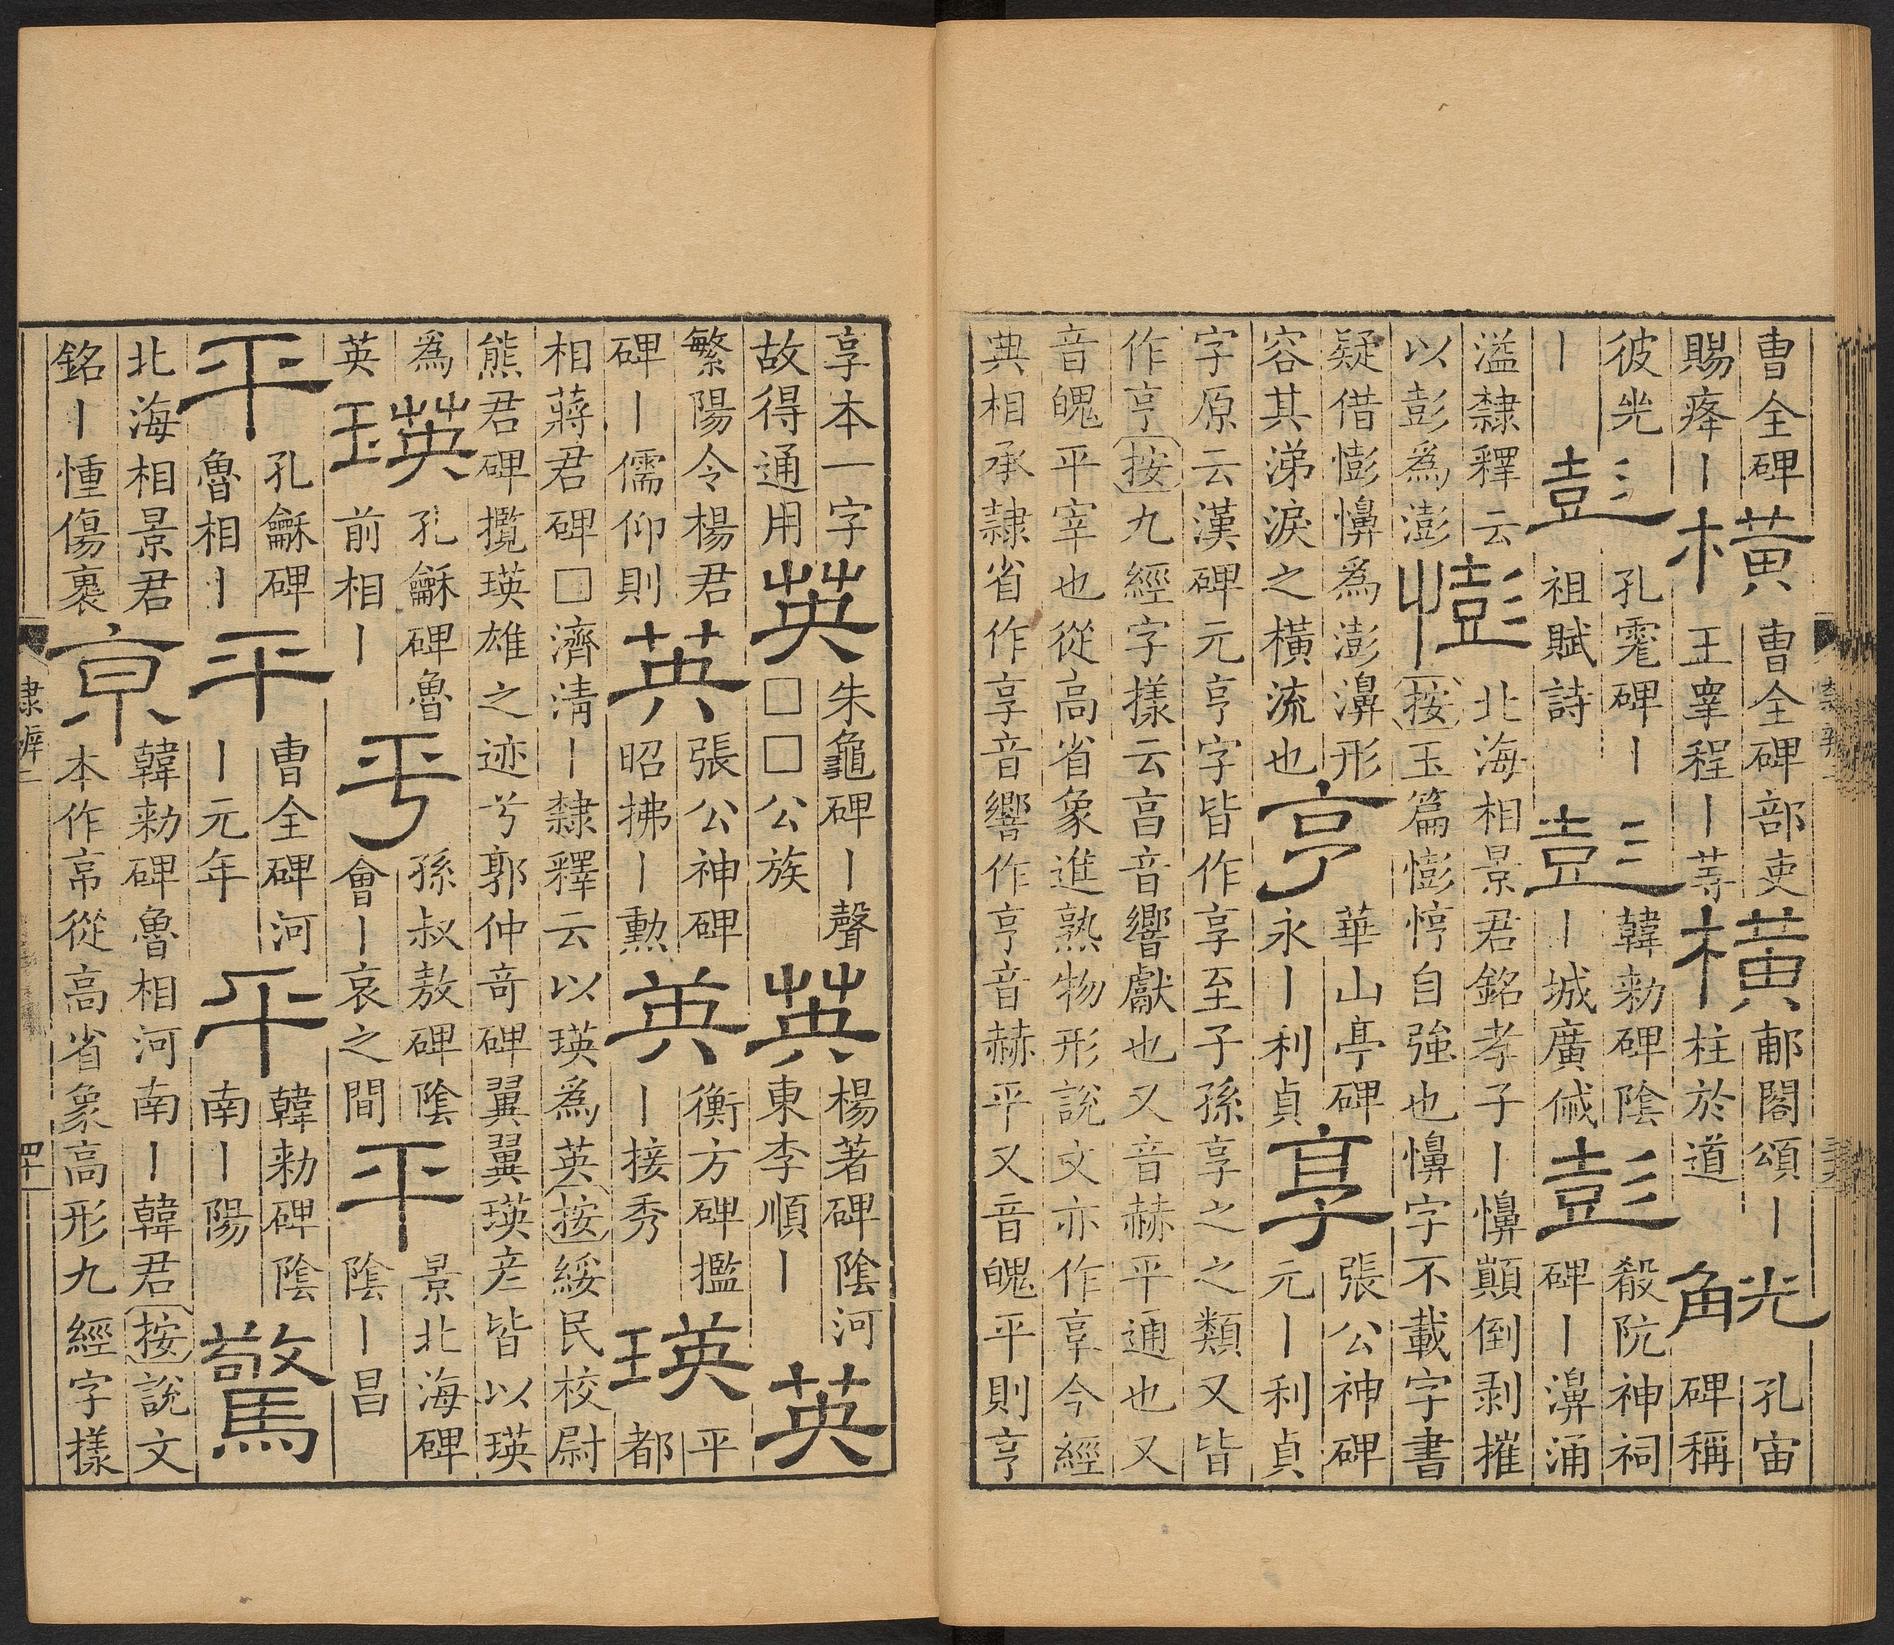 曹全碑
賜癃丨
橫
曹全碑部吏
王睾程丨等
橫
郙閣頌丨
柱於道
觥
孔宙
碑稱
彼兕
丨
彭
孔彪碑丨
祖賦詩
彭
韓勑碑陰
丨城廣戫
彭
殽阬神祠
碑丨濞涌
溢隸釋云
以彭為澎
憉
北海相景君銘孝子丨顛倒剥摧
按玉篇憉悙自強也字不載字書
疑借憉為澎濞形
容其涕淚之橫流也
亨
華山亭碑
永丨利貞
享
張公神碑
元丨利貞
字原云漢碑元亨字皆作享至子孫享之之類又皆
作亨按九經字樣云亯音響獻也又音赫平通也又
音魄平宰也從高省象進熟物形說文亦作享今經
典相承隷省作享音響作亨音赫平又音魄平則亨
享本一字
故得通用
英
朱龜碑丨聲
□□公族
英
楊著碑陰河
東李順丨
英
繁陽令楊君
碑丨儒仰則
英
張公神碑
昭拂丨勳
英
衡方碑㩜
丨接秀
瑛
平
都
相蔣君碑□濟清丨隸釋云以瑛為英按綏民校尉
熊君碑攬瑛雄之迹兮郭仲奇碑翼翼瑛彦皆以瑛
為
英
瑛
孔龢碑魯
前相丨
平
孫叔敖碑陰
會丨哀之間
平
景北海碑
陰丨昌
平
孔龢碑
魯相丨
平
曹全碑河
丨元年
平
韓勑碑陰
南丨陽
驚
北海相景君
銘丨慟傷裏
京
韓勑碑魯相河南丨韓君按說文
本作𠅘從高省象高形九經字樣
隸辨二
四十